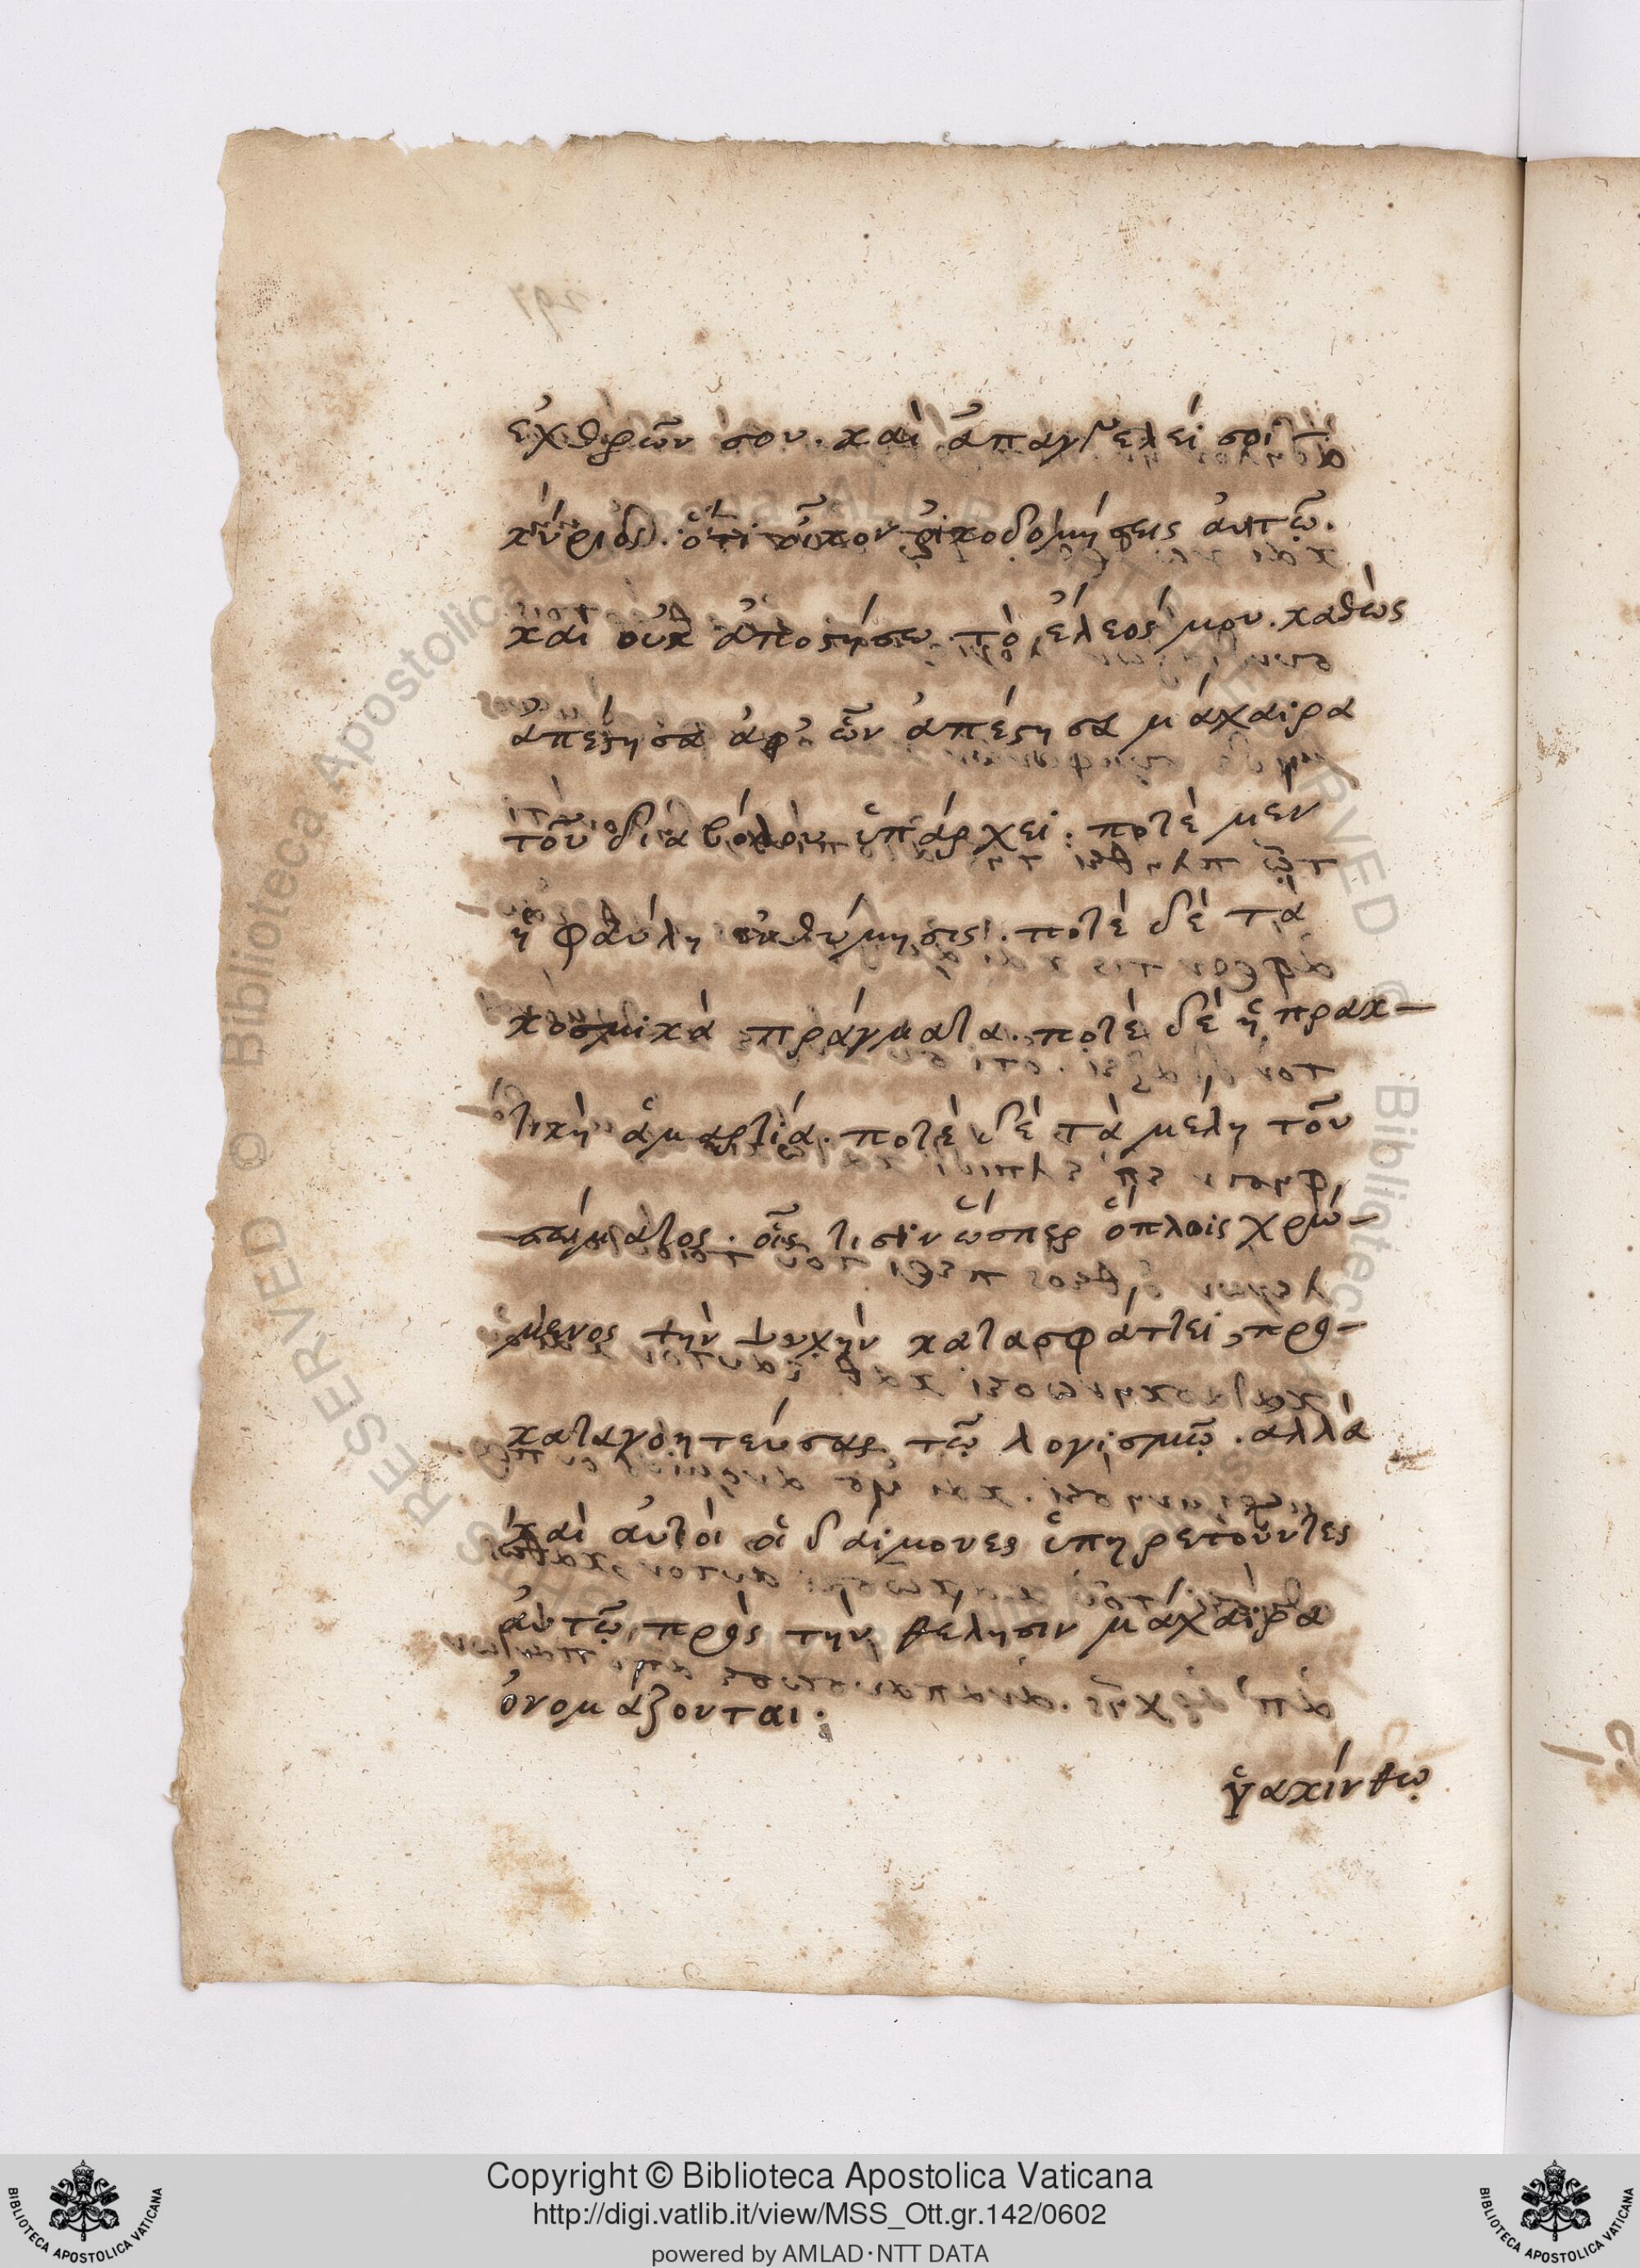 ἐχθρῶν σου. καὶ ἀπαγγελεῖ σοι
κύριος. ὅτι οἶκον οἰκοδομήσεις αὐτῷ.
καὶ οὐκ ἀποστήσω τὸ ἔλεός μου. καθὼς
ἀπέστησα ἀφ' ὧν ἀπέστησα μάχαιρα
τοῦ διαβόλου ὑπάρχει. ποτὲ μὲν
ἡ φαύλη ἐνθύμησις. ποτὲ δὲ τὰ
κοσμικὰ πράγματα. ποτὲ δὲ ἡ πρακ-
τικὴ ἁμαρτία. ποτὲ δὲ τὰ μέλη τοῦ
σώματος. οἷς τισὶν ὥσπερ ὅπλοις χρώ-
μενος τὴν ψυχὴν κατασφάττει, προ-
καταγοητεύσας τῷ λογισμῷ. ἀλλὰ
καὶ αὐτοὶ οἱ δαίμονες ὑπηρετοῦντες
αὐτῷ πρὸς τὴν θέλησιν μάχαιρα
ὀνομάζονται.
ὑακίνθῳ
Copyright © Biblioteca Apostolica Vaticana
http://digi.vatlib.it/view/MSS_Ott.gr.142/0602
powered by AMLAD·NTT DATA
BIBLIOTECA APOSTOLICA VATICANA
BIBLIOTECA APOSTOLICA VATICANA